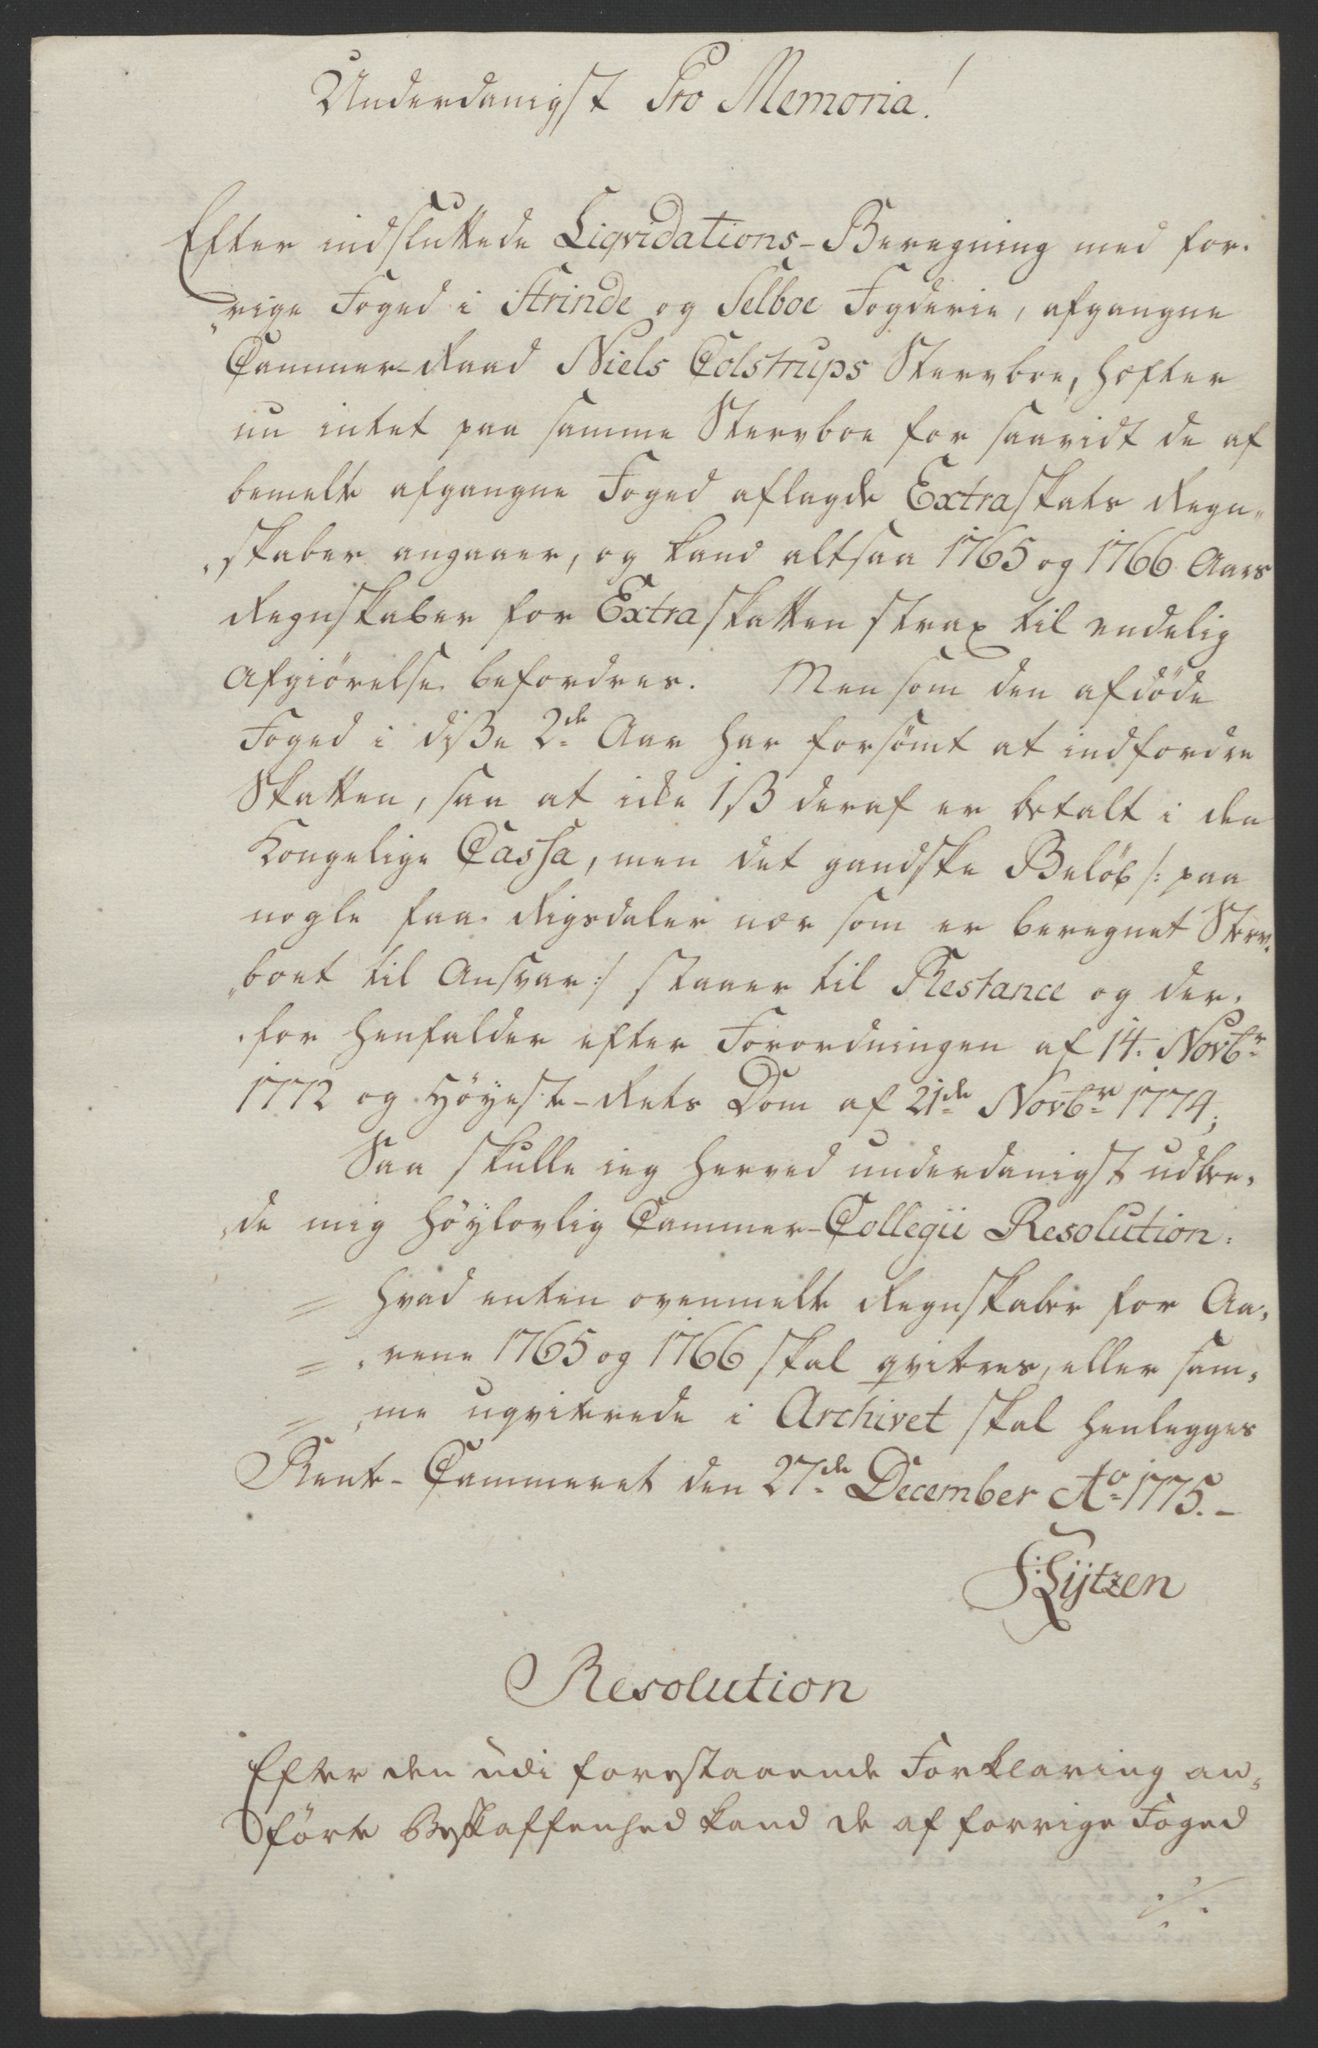 Underdanigst Pro Memoria!
Efter indsluttede Liqvidations-Beregning med for-
rige Foged i Strinde og Selboe Fogderie, afgangne
Cammer-Raad Niels Colstrups Stervboe, hæfter
nu intet paa samme Stervboe for saavidt de af
bemelte afgangne Foged aflagde Extraskats Regn-
skaber angaaer, og kand altsaa 1765 og 1766 Aars
Regnskaber for Extraskatten strax til endelig
Afgiörelse befordres. Men som den afdöde
Foged i diße 2de Aar har forsömt at indfordre
Skatten, saa at icke 1 ß deraf er betalt i den
Kongelige Cassa, men det gandske Belöb /: paa
nogle faa Rigsdaler nær som er beregnet Sterv-
boet til Ansvar :/ staaer til Restance og der-
for henfalder efter Forordningen af 14. Novbr
1772 og Höyeste-Rets Dom af 21de Novbr 1774;
Saa skulle ieg herved underdanigst udbe-
de mig Höylovlig Cammer-Collegii Resolution:
= hvad enten ovenmelte Regnskaber for Aa-
= rene 1765 og 1766 skal qviteres, eller sam-
= me uqviterede i Archivet skal henlegges
Rente-Cammeret den 27de December Ao 1775.-
S: Lijtzen
Resolution
Efter den udi forestaaende Forklaring an-
förte Beskaffenhed kand de af forrige Foged
./.